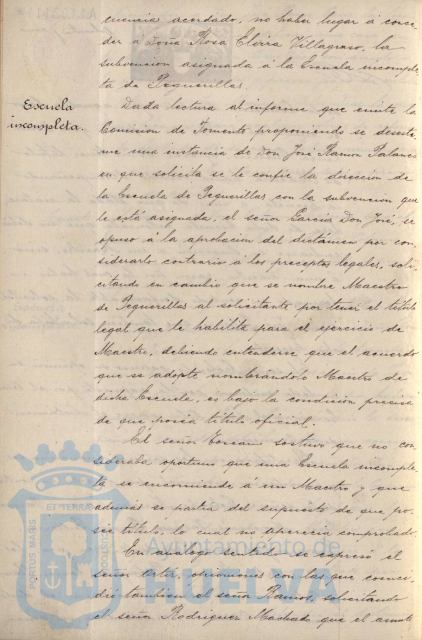 cuencia acordado, no haber lugar á conce-
der á Doña Rosa Elvira Villagraso, la
subvencion asignada á la Escuela incomple-
ta de Peguerillas.
Escuela
incompleta.
Dada lectura al informe que emite la
Comision de Fomento proponiendo se desesti-
me una instancia de Don José Ramon Palanco
en que solicita se le confie la direccion de
la Escuela de Peguerillas con la subvencion que
le está asignada, el señor Garcia Don José, se
opuso á la aprobacion del dictámen por con-
siderarlo contrario á los preceptos legales, soli-
citando en cambio que se nombre Maestro
de Peguerillas al solicitante por tener el título
legal que le habilita para el ejercicio de
Maestro, debiendo entenderse que el acuerdo
que se adopte nombrándolo Maestro de
dicha Escuela, es bajo la condicion precisa
de que posea título oficial.
El señor sostuvo que no con-
sideraba oportuno que una Escuela incomple-
ta se encomiende á un Maestro y que
además se partia del supuesto de que po-
sia título, lo cual no aparecia comprobado.
En análogo sentido se expresó el
señor Ortiz, opiniones con las que coinci-
dió tambien el señor Ramos, solicitando
el señor Rodriguez Machado que el asunto
PORTUS MARIS ET TERRAE CUSTODIA
Ayuntamiento de
HUELVA